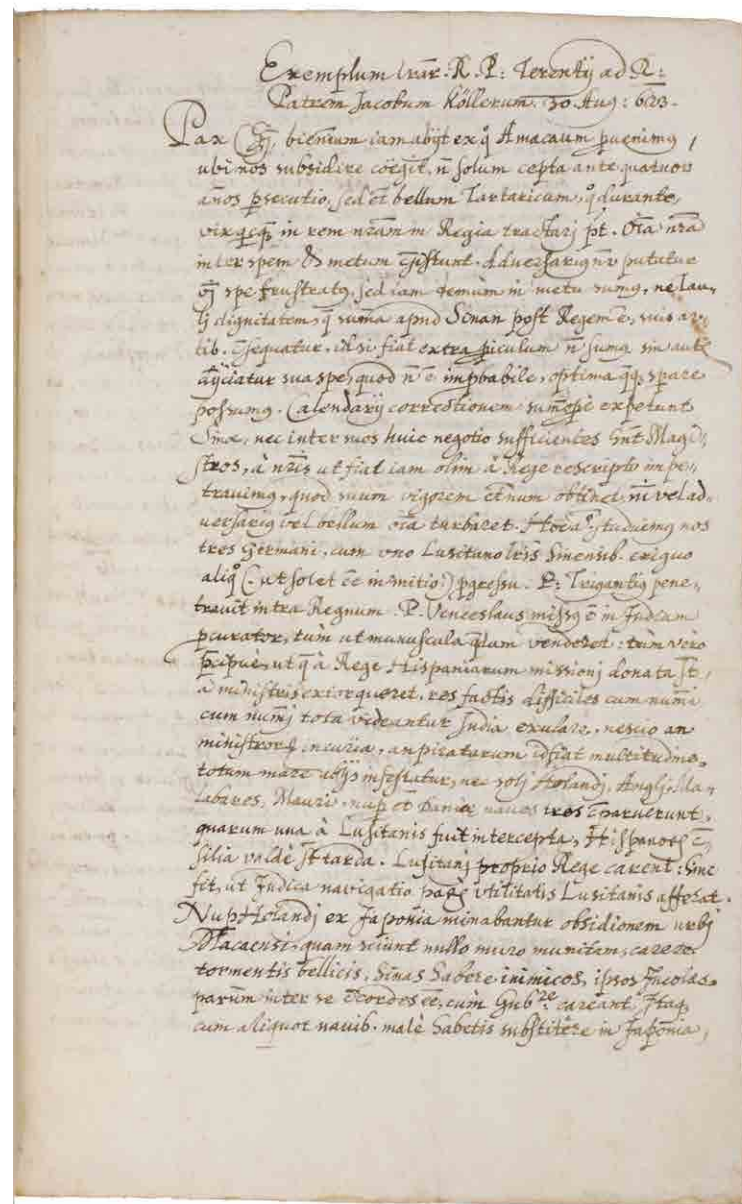 Exemplum lrãr. R. P: Terentij ad R:
Patrem Jacobum Köllerum. 30. Aug: 623.
Pax biennium iam abijt ex q̊ Amacaum puenimq,
ubi nos subsidire cöegit, n̄ solum cepta ante quatuor
años psecutio, sed et bellum Tartaricum, q̊ durante,
vix in rem nrãm in Regia tractarj pt. Oĩa nrã
inter spem & metum Adversariq putatur
spe frustratq, sed iam demum in metu sumq, ne Lau-
lj dignitatem, q̄ suma apud Sinan post Regem ē, suis ar-
tib. q̄sequatur, id si fiat extra piculum n̄ sumq sin aute
sua spe, quod n̄ ē impbabile, optima spare
possumq. Calendarij correctionem expetunt
Sinæ, nec inter suos huic negotio sufficientes hnt Magi-
stros, à nrĩs ut fiat iam olim à Rege rescripto impe-
travimq, quod suum vigorem obtinet, nĩ vel ad-
versariq vel bellum oĩa turbaret. studuemq nos
tres Germani, cum vno Lusitano lrĩs Sinensib. exiguo
aliq̊ (: ut solet ēe in initio:) pgressu. P: Trigantiq pene-
travit intra Regnum. P. Venceslaus missq ē in Indiam
pcurator, tum ut munuscula q̄dam venderet: tum vero
pcipuè, ut q̄ à Rege Hispaniarum missionj donata st,
à ministris extorqueret, res factis difficiles cum numĩ
cum numj tota videantur India exulare, nescio an
ministror incuria, an piratarum id fiat multitudine,
totum mare infestatur, nec solj Holandj, Anglj, Ma-
labares, Mauri, nup et Daniæ naves tres q̄paruerunt,
quarum una à Lusitanis fuit intercepta, Hispanor q̄-
silia valdè st tarda. Lusitanj proprio Rege carent: hinc
fit, ut Indica navigatio utilitatis Lusitanis afferat.
Nup Holandj ex Japonia minabantur obsidionem urbj
Macaensi, quam sciunt nullo muro munitam, carere
tormentis bellicis, Sinas habere inimicos, ipsos Incolas
parum inter se q̄cordes ēe, cum Gubre careant. Itaq
cum aliquot navib. malè habitis substitêre in Japonia,